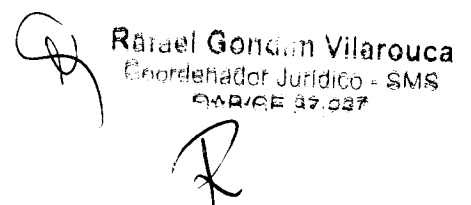 Rafael Gondim Vilarouca
Coordenador Jurídico - SMS
OAB/CE